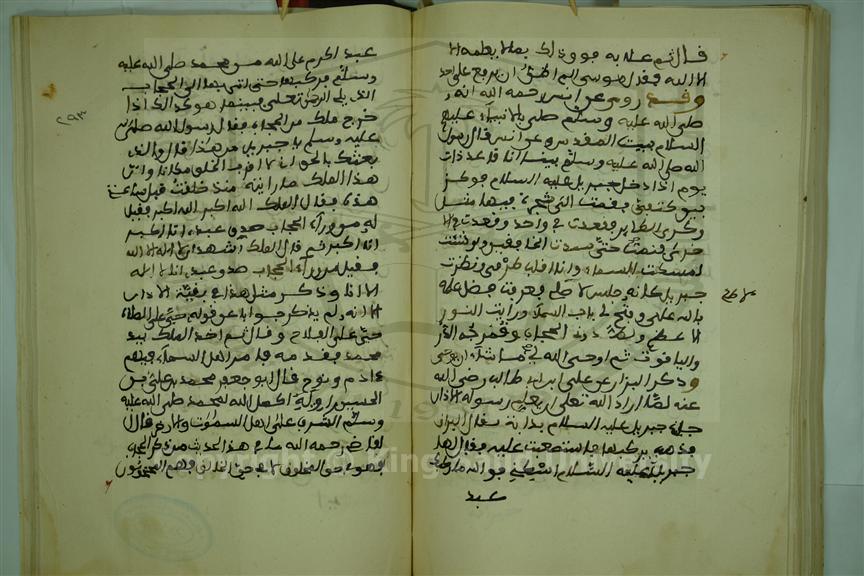 قال ثم علا به فوق ذلك بما لا يعلمه الا
الا الله فقال موسى لم اظن ان يرفع على احد
وقد روى عن انس رحمه الله انه
صلى الله عليه وسلم صلى بالانبياء عليهم
السلام ببيت المقدس وعن انس قال رسول
الله صلى الله عليه وسلم بينا انا قاعد ذات
يوم اذ دخل جبريل عليه السلام فوكز
بين كتفي فقمت الى شجرة فيها مثل
وكري الطاير فقعد في واحد وقعدت في الا
خرى فنمت حتى سدت الخافقين ولو شئت
لمسست السماء وانا اقلب طرفي ونظرت
جبريل كانه حلس لاطئ فعرفت فضل علمه
بالله علي وفتح لي باب السماء ورايت النور
الاعظم دوني الحجاب وفرجه الدر
والياقوت ثم اوحى الله الي ما شاء ان يوحي
وذكر البزار عن علي ابن ابي طالب رضي الله
عنه لما اراد الله تعلى ان يعلم رسوله الاذان
جاءه جبريل عليه السلام بدابة يقال لها البراق
فذهب يركبها فاستصعبت عليه فقال لها
جبريل عليه السلام اسكني فوالله ما ركبك
عبد
عبد اكرم على الله من محمد صلى الله عليه
وسلم فركبها حتى اتى بها الى الحجاب
الذي يلي الرحمن تعلى فبينما هو كذلك اذا
خرج ملك من الحجاب فقال رسول الله صلى الله
عليه وسلم يا جبريل من هذا قال والذي
بعثك بالحق اني لا قرب الخلق مكانا وان
هذا الملك ما رايته منذ خلقت قبل ساعتي
هذه فقال الملك الله اكبر الله اكبر فقيل
له من وراء الحجاب صدق عبدي انا اكبر
انا اكبر ثم قال الملك اشهد ان لا اله الا الله
فقيل من وراء الحجاب صدق عبدي انا لا اله
الا انا وذكر مثل هذا في بقية الاذان
الا انه لم يذكر جوابا عن قوله حي على الصلاة
حي على الفلاح وقال ثم اخذ الملك بيد
محمد فقدمه فام اهل السماء فيهم
ءادم ونوح قال ابو جعفر محمد بن علي بن
الحسين راويه اكمل الله لمحمد صلى الله عليه
وسلم الشرف على اهل السموات والارض قال
القاضي رحمه الله ما في هذا الحديث من ذكر الحجاب
فهو في حق المخلوق لا في حق الخالق فهم المحجوبون